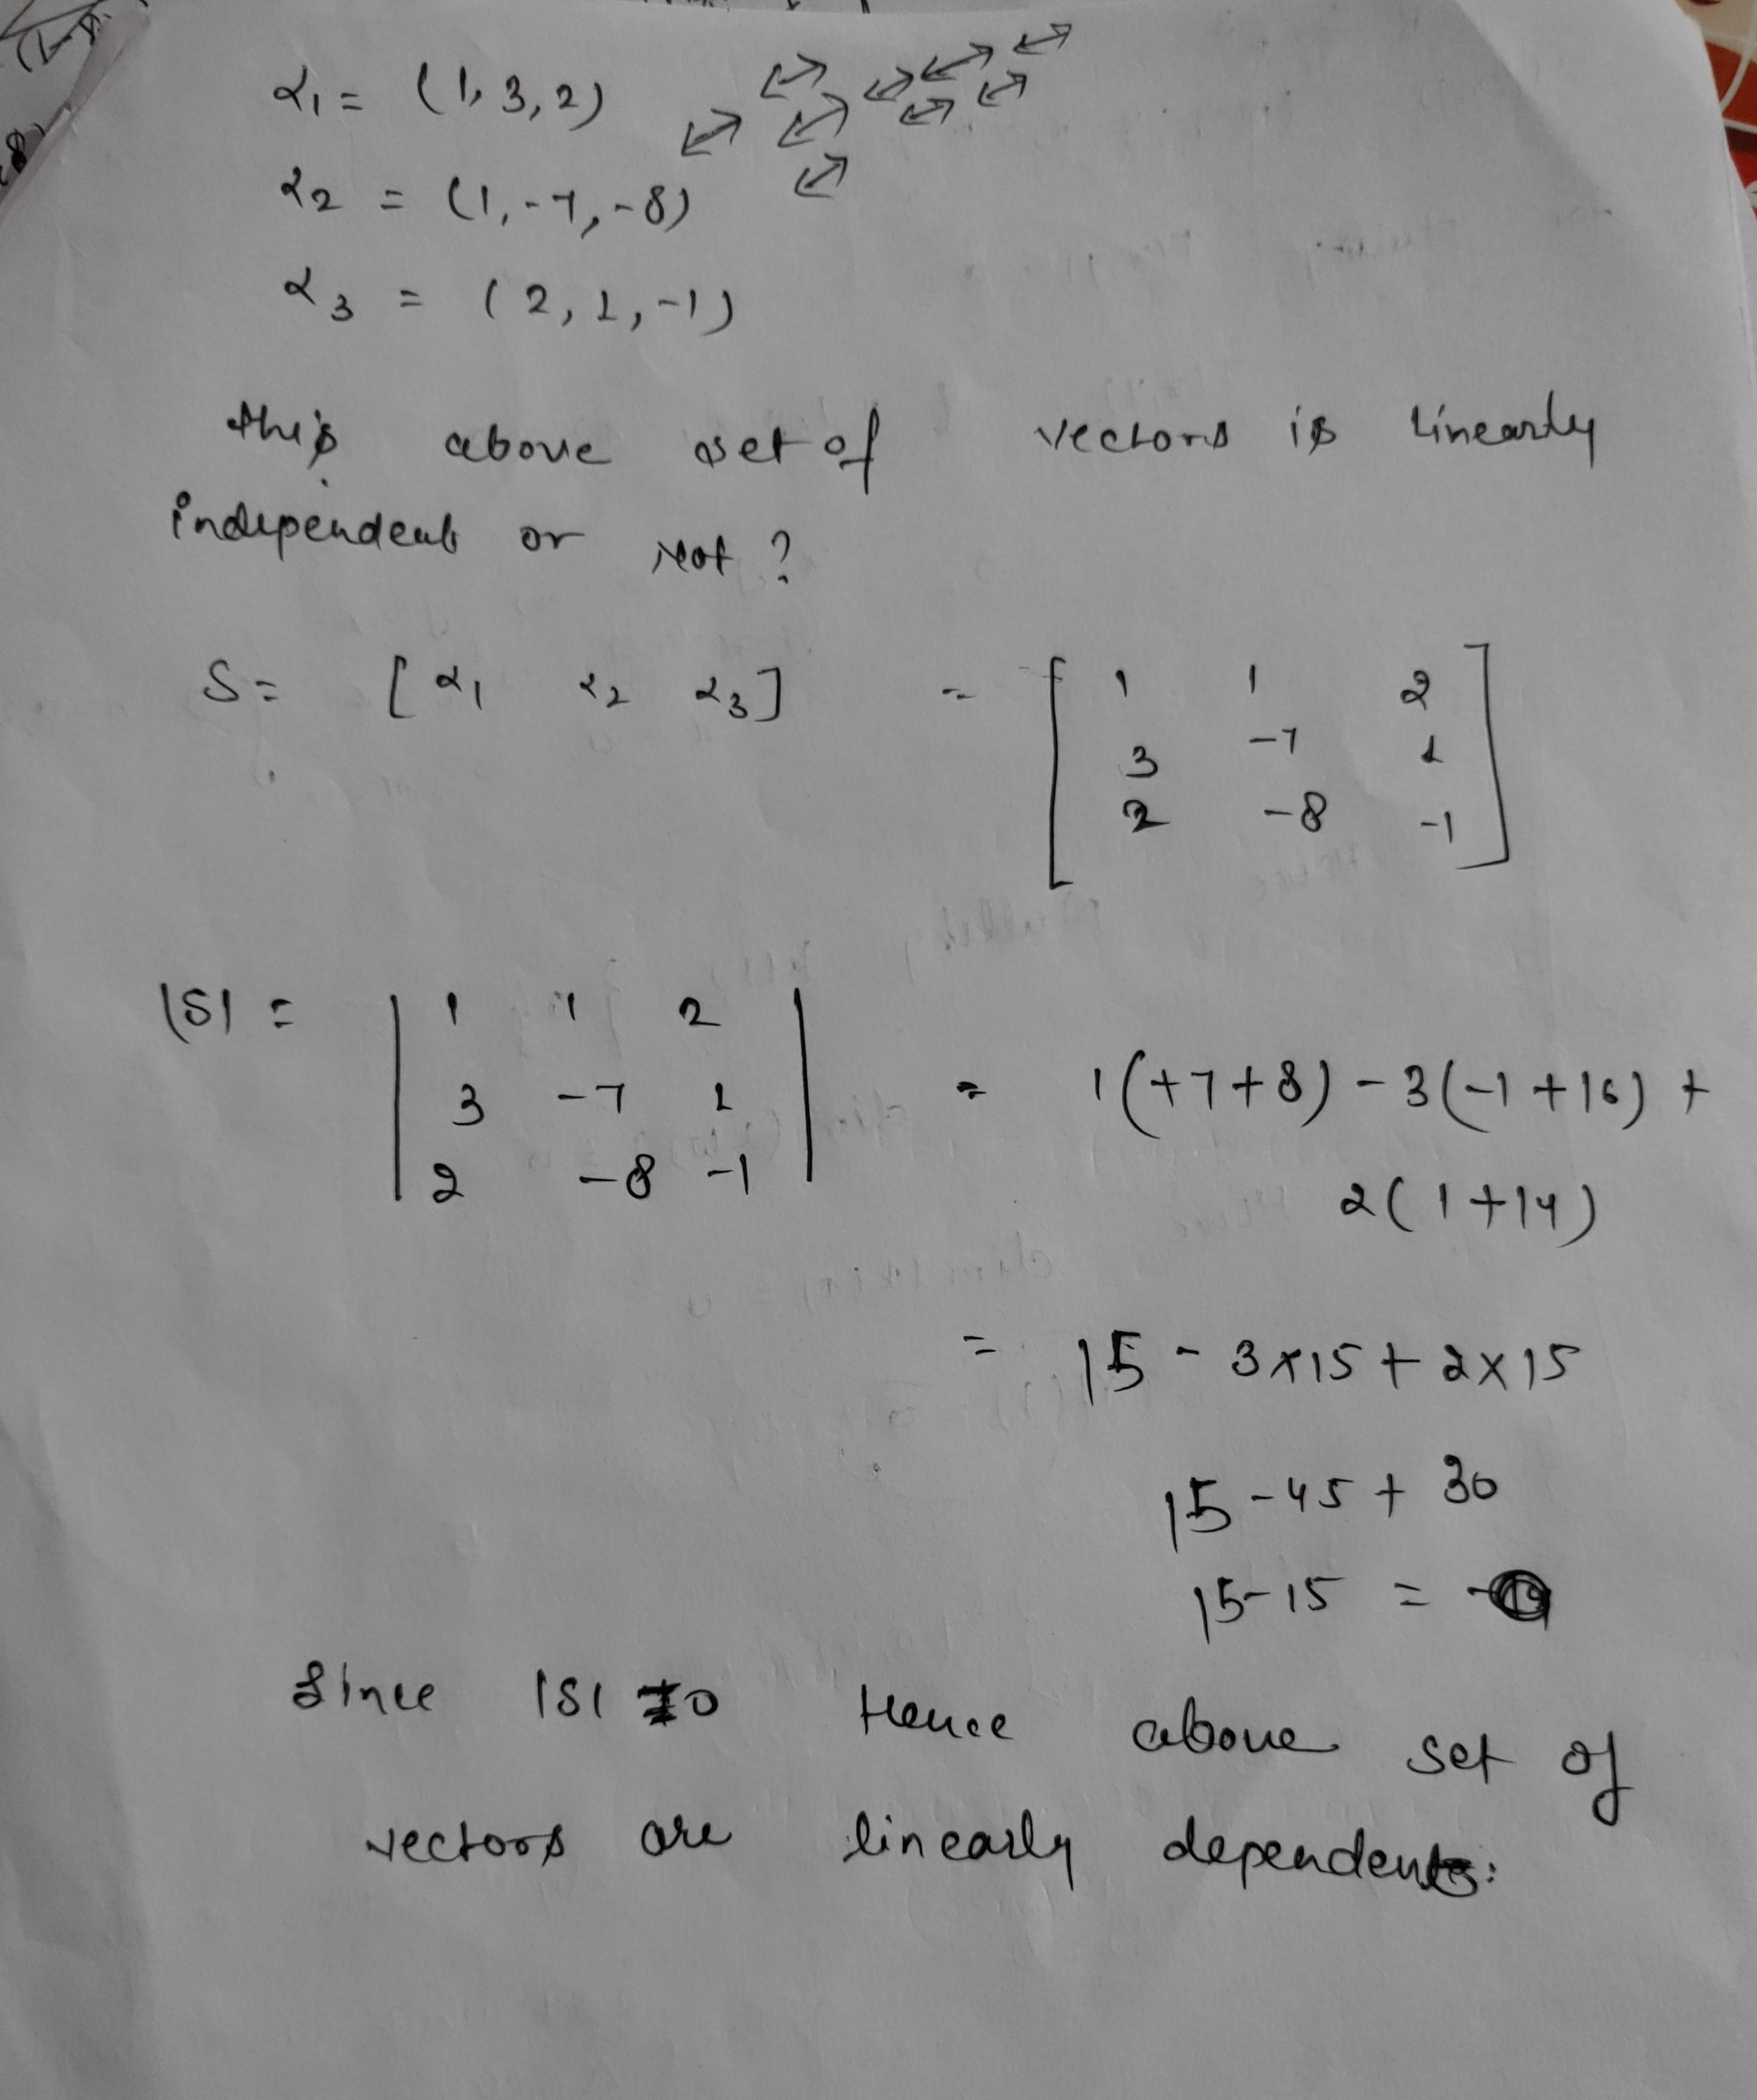 α1 = (1, 3, 2)
α2 = (1, -7, -8)
α3 = (2, 1, -1)
this above set of vectors is linearly
independent or Not ?
S = [α1 α2 α3] = [ 1 1 2
3 -7 1
2 -8 -1 ]
|S| = | 1 1 2
3 -7 1
2 -8 -1 | = 1(+7+8) - 3(-1+16) +
2(1+14)
= 15 - 3x15 + 2x15
15 - 45 + 30
15-15 =
Since |S| 0 Hence above set of
vectors are linearly dependent.